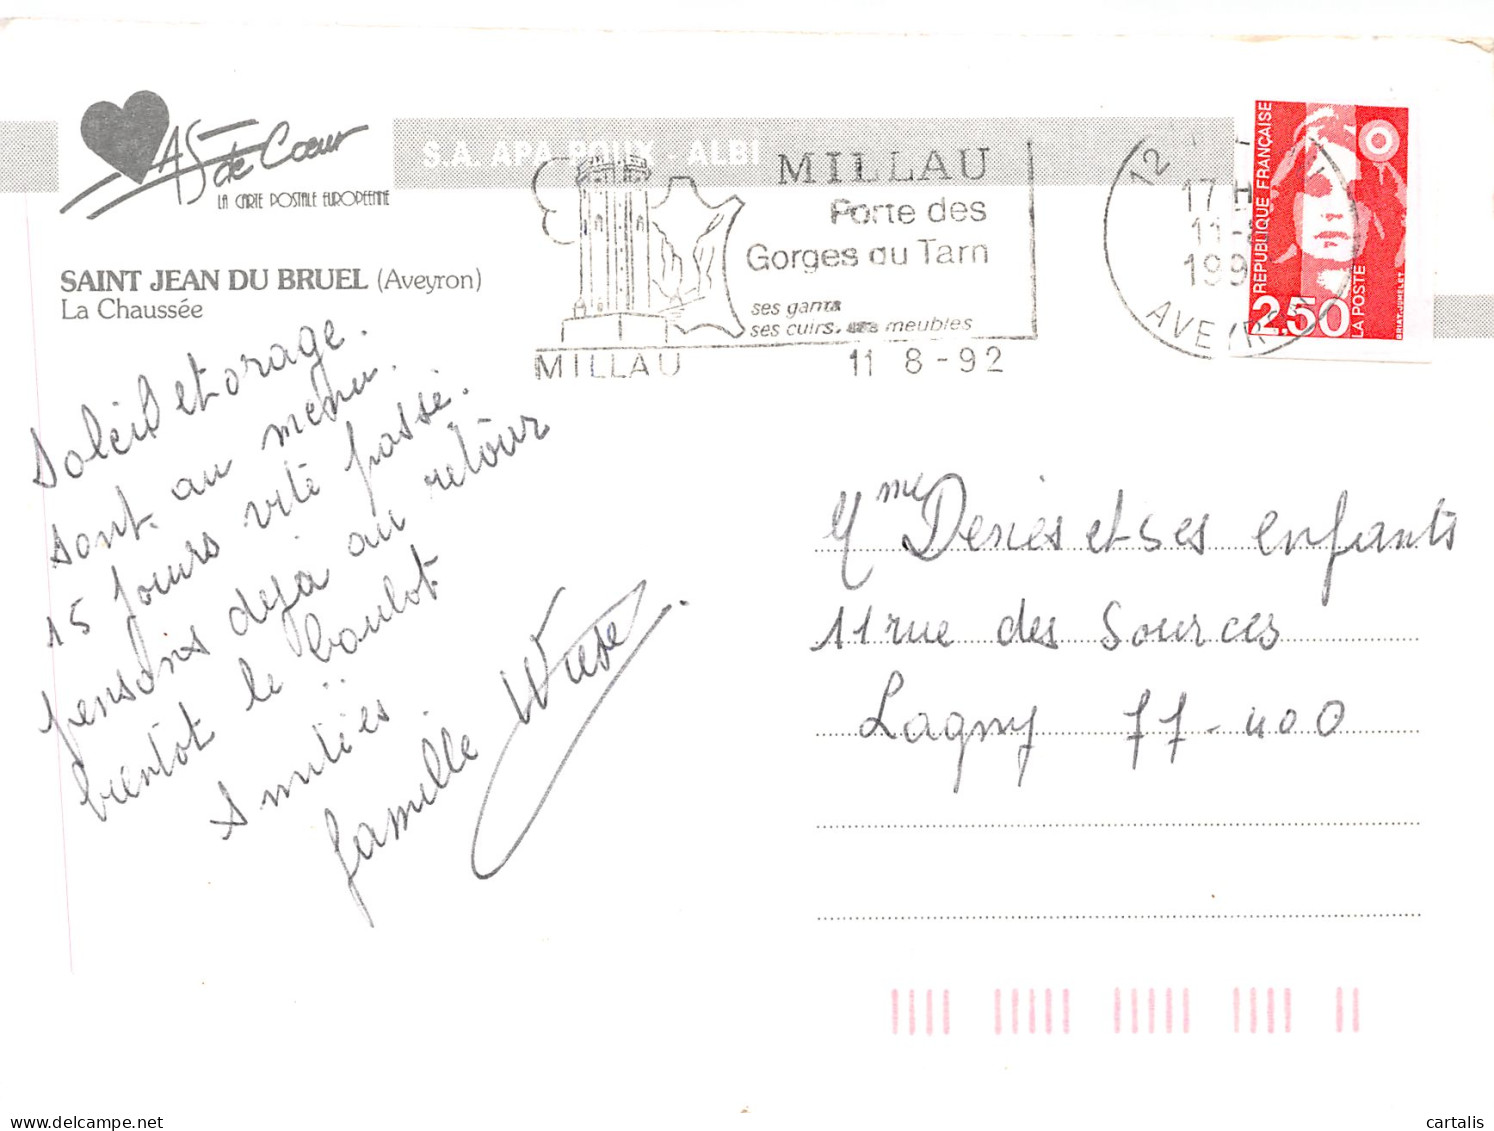 AS de Coeur
LA CARTE POSTALE EUROPEENNE
S.A. APA-POUX - ALBI
SAINT JEAN DU BRUEL (Aveyron)
La Chaussée
MILLAU
Porte des
Gorges du Tarn
ses gants
ses cuirs, ses meubles
MILLAU 11 8-92
12
17 H
11-8
199
AVEYR
REPUBLIQUE FRANÇAISE
2,50
LA POSTE
BRIAT-JUMELET
Soleil et orage.
sont au menu.
15 jours vite passé.
pensons déjà au retour
bientôt le boulot
Amitiés.
famille Wiese
Mme Deries et ses enfants
11 rue des Sources
Lagny 77-400
cartalis